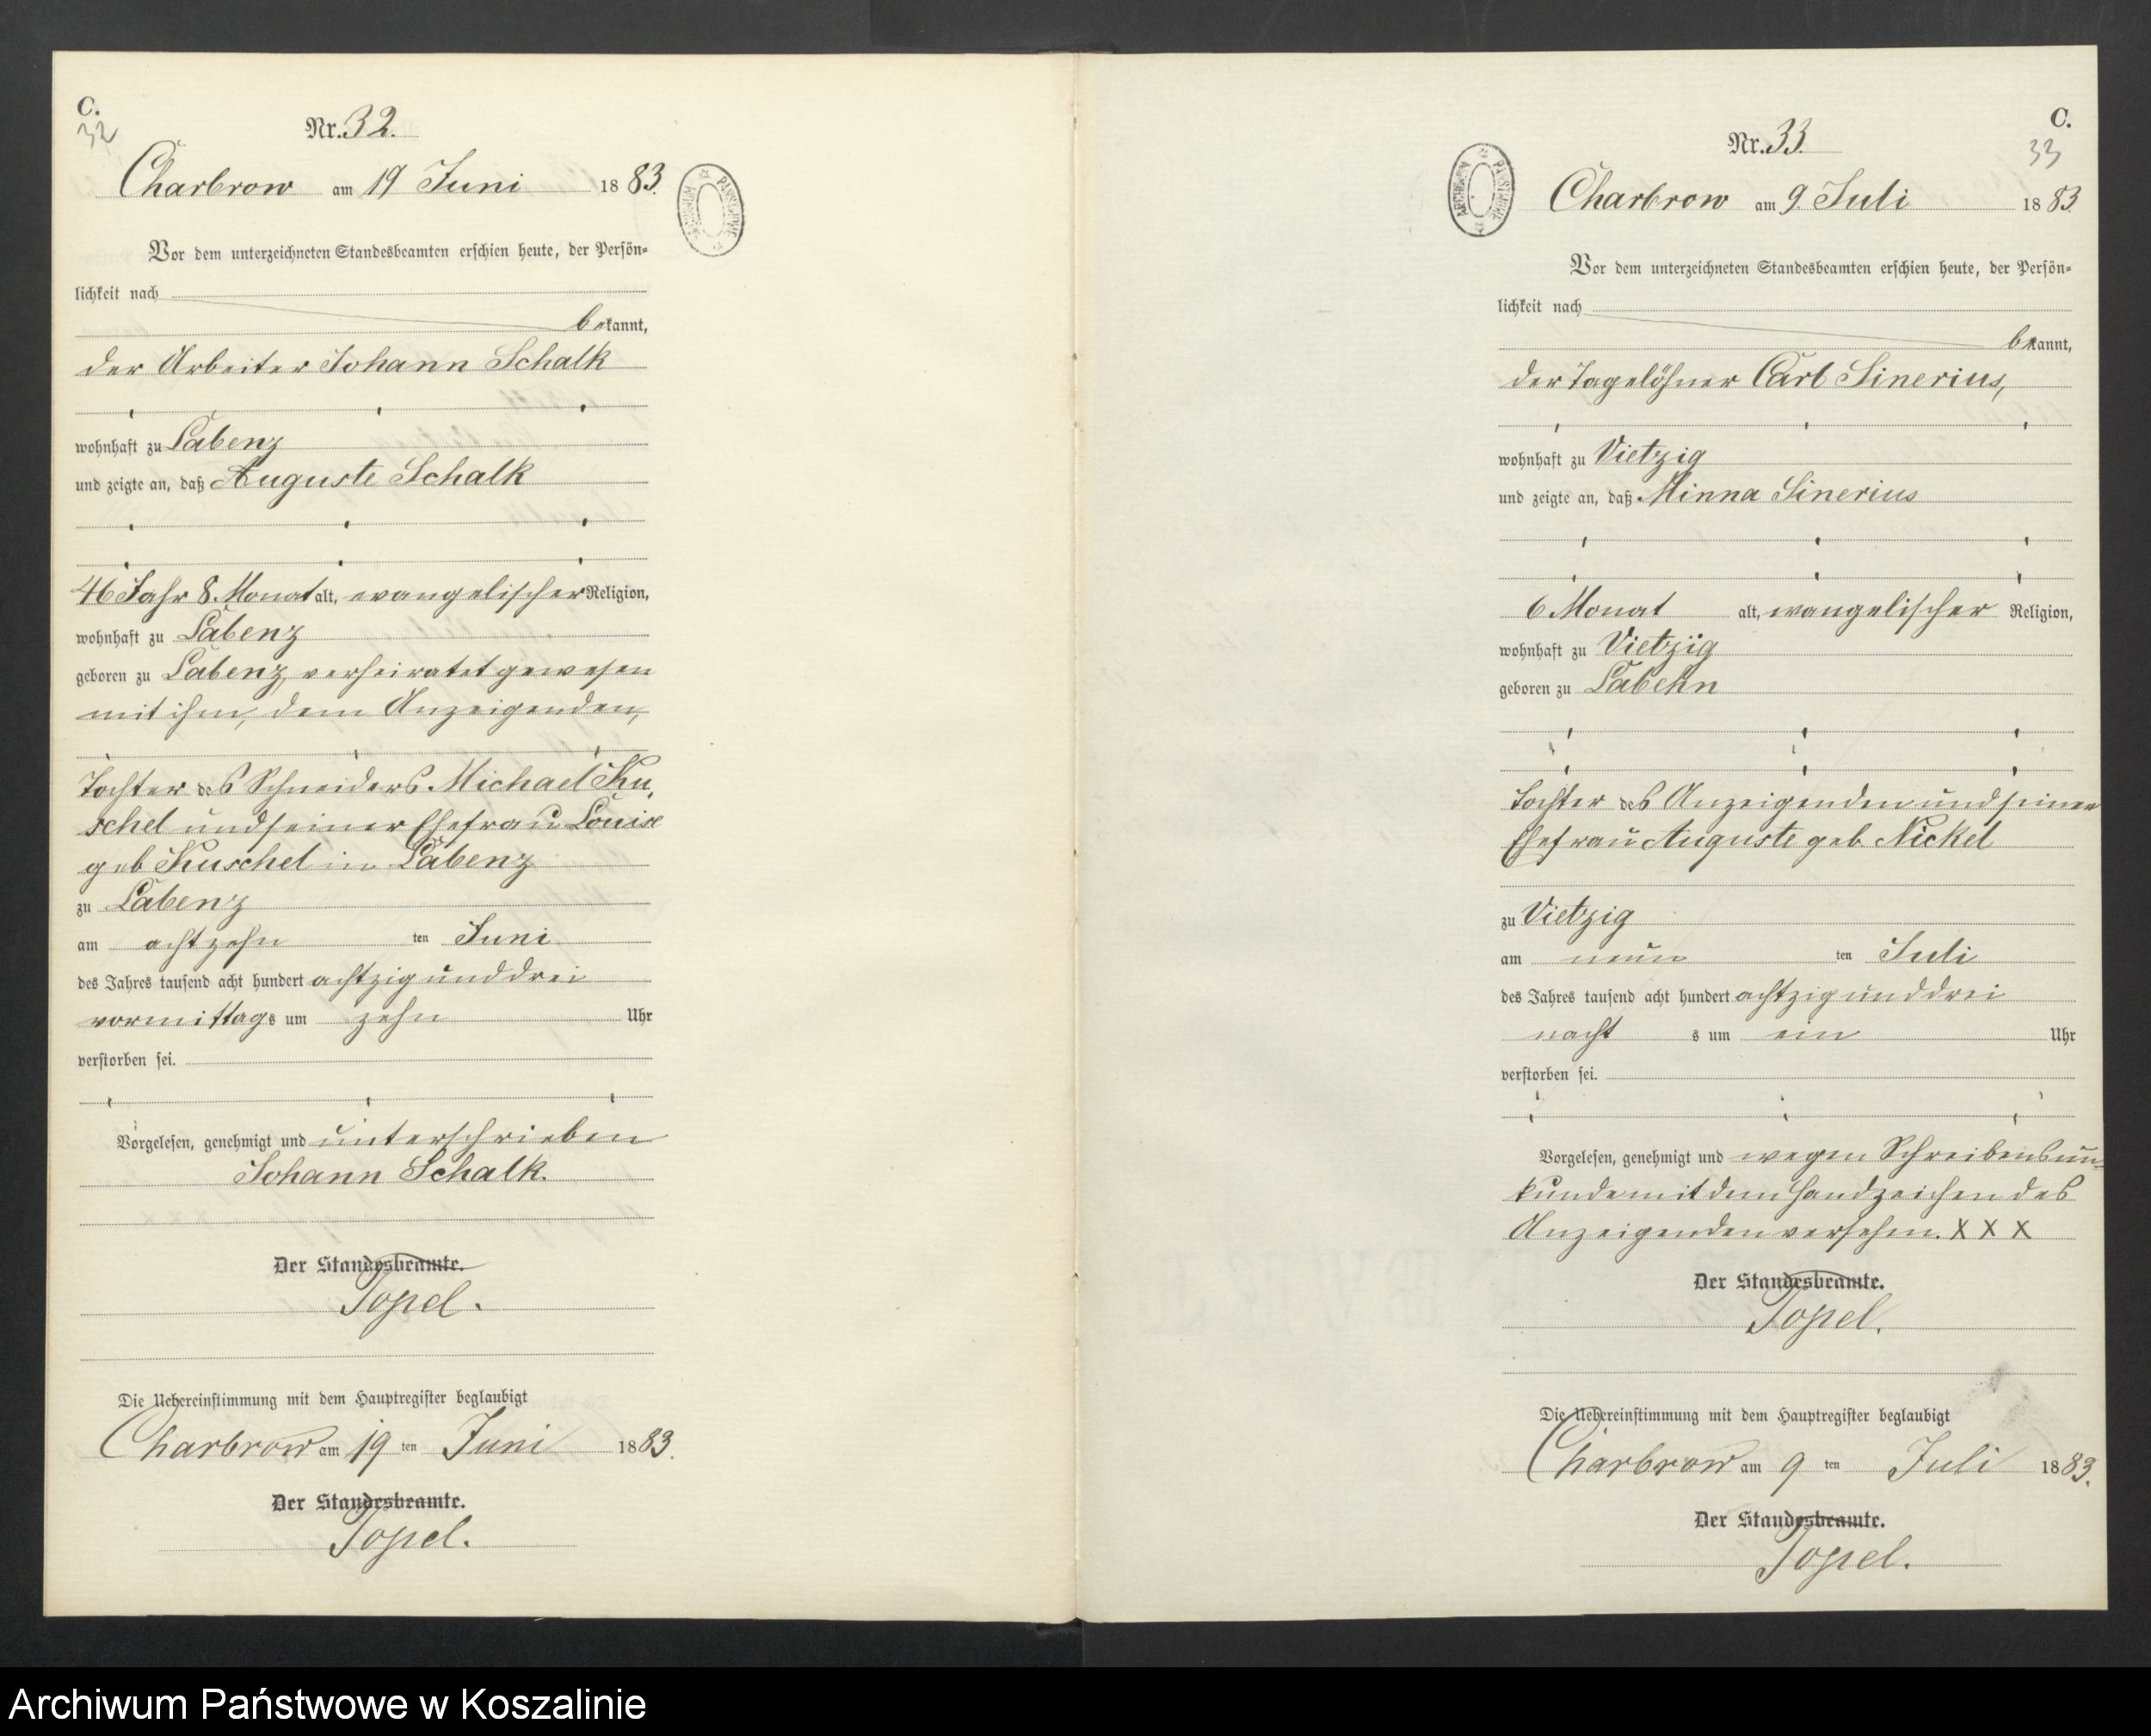 C.
32
Nr. 32.
Charbrow am 19 Juni 1883.
ARCHIWUM PAŃSTWOWE
Vor dem unterzeichneten Standesbeamten erschien heute, der Persön-
lichkeit nach
bekannt,
der Arbeiter Johann Schalk
wohnhaft zu Labenz
und zeigte an, daß Auguste Schalk
46 Jahr 8 Monat alt, evangelischer Religion,
wohnhaft zu Labenz
geboren zu Labenz, verheiratet gewesen
mit ihm, dem Anzeigenden,
Tochter des Schneiders Michael Ku-
schel und seiner Ehefrau Louise
geb Kuschel in Labenz
zu Labenz
am achtzehn ten Juni
des Jahres tausend acht hundert achtzig und drei
vormittags um zehn Uhr
verstorben sei.
Vorgelesen, genehmigt und unterschrieben
Johann Schalk.
Der Standesbeamte.
Topel.
Die Uebereinstimmung mit dem Hauptregister beglaubigt
Charbrow am 19 ten Juni 1883.
Der Standesbeamte.
Topel.
C.
33
Nr. 33.
Charbrow am 9. Juli 1883
ARCHIWUM PAŃSTWOWE
Vor dem unterzeichneten Standesbeamten erschien heute, der Persön-
lichkeit nach
bekannt,
der Tagelöhner Carl Sinerius,
wohnhaft zu Vietzig
und zeigte an, daß Minna Sinerius
6 Monat alt, evangelischer Religion,
wohnhaft zu Vietzig
geboren zu Labehn
Tochter des Anzeigenden und seiner
Ehefrau Auguste geb. Nickel
zu Vietzig
am neun ten Juli
des Jahres tausend acht hundert achtzig und drei
nacht s um ein Uhr
verstorben sei.
Vorgelesen, genehmigt und wegen Schreibensun-
kunde mit dem Handzeichen des
Anzeigenden versehen. X X X
Der Standesbeamte.
Topel.
Die Uebereinstimmung mit dem Hauptregister beglaubigt
Charbrow am 9 ten Juli 1883.
Der Standesbeamte.
Topel.
Archiwum Państwowe w Koszalinie